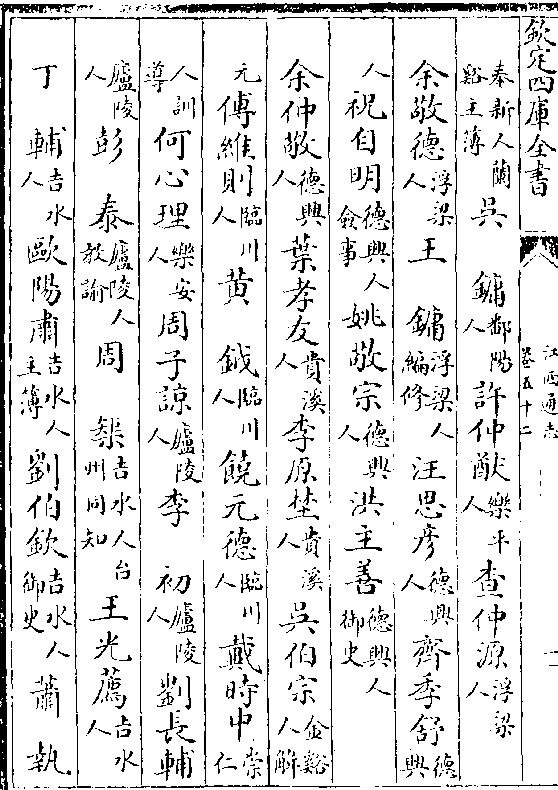 欽定四庫全書
江西通志
卷五十二
奉新人蘭谿主簿吳 鏞鄱陽人許仲猷樂平人查仲源浮梁人
余敬德浮梁人王 鏞浮梁人編修汪思彦德興人齊季舒德興
人祝自明德興人僉事姚敬宗德興人洪主善德興人御史
余仲敬德興人葉孝友貴溪人李原埜貴溪人吳伯宗金谿人解
元傅維則臨川人黄 鉞臨川人饒元德臨川人戴時中崇仁
人訓導何心理樂安人周子諒廬陵人李 初廬陵人劉長輔
廬陵人彭 泰廬陵人教諭周 槼吉水人台州同知王光薦吉水人
丁 輔吉水人歐陽肅吉水人主簿劉伯欽吉水人御史蕭 執